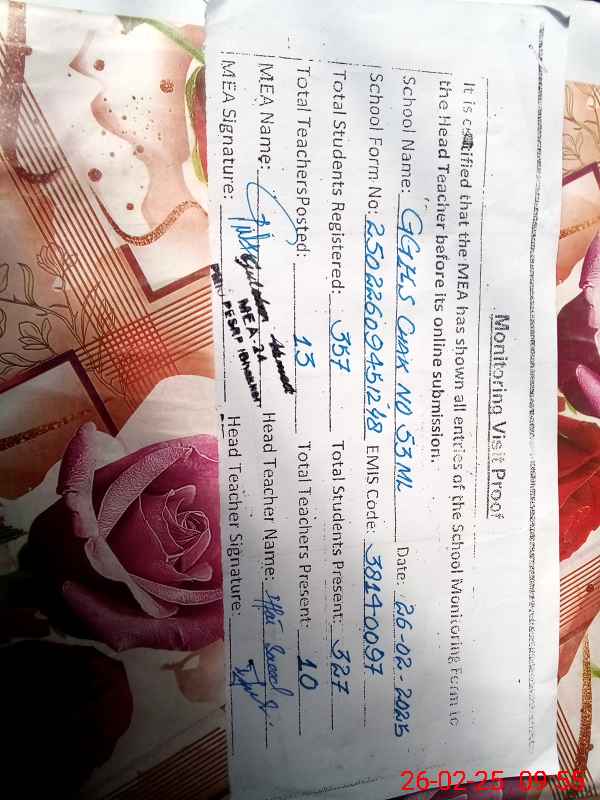 Monitoring Visit Proof
It is certified that the MEA has shown all entries of the School Monitoring Form to
the Head Teacher before its online submission.
School Name: GGHS Chak NO 53 ML Date: 26-02-2025
School Form No: EMIS Code: 38140097
Total Students Registered: 357 Total Students Present: 327
Total Teachers Posted: 13 Total Teachers Present: 10
MEA Name: Head Teacher Name: Saeed
MEA-24
MEA Signature: Head Teacher Signature:
26-02-25 09:55